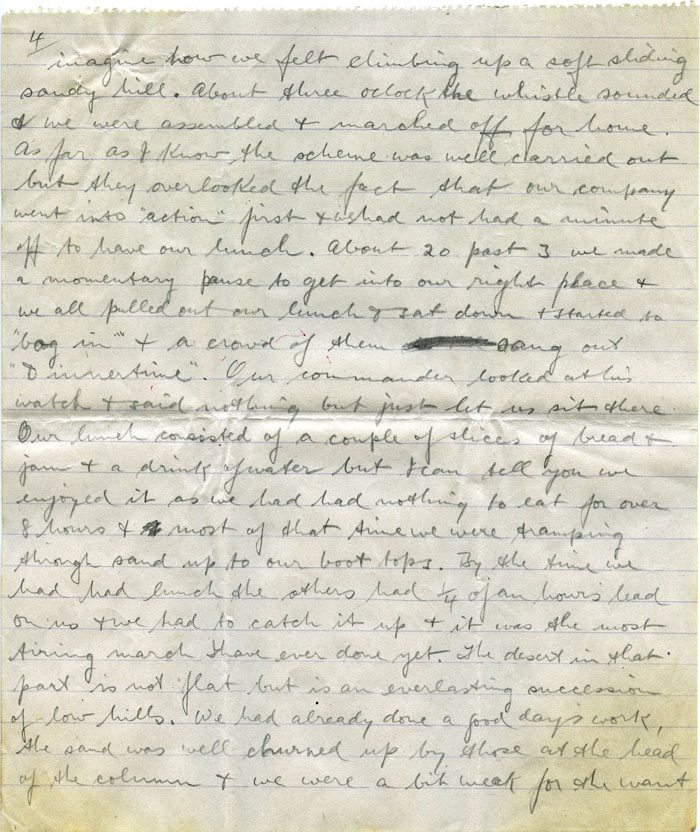 4
imagine how we felt climbing up a soft sliding
sandy hill. About three oclock the whistle sounded
& we were assembled & marched off for home.
As far as I know the scheme was well carried out
but they overlooked the fact that our company
went into "action" first & had not had a minute
off to have our lunch. About 20 past 3 we made
a momentary pause to get into our right place &
we all pulled out our lunch & sat down & started to
"bog in" & a crowd of them sang out
"Dinnertime". Our commander looked at his
watch & said nothing but just let us sit there
Our lunch consisted of a couple of slices of bread &
jam & a drink of water but I can tell you we
enjoyed it as we had had nothing to eat for over
8 hours & most of that time we were tramping
through sand up to our boot tops. By the time we
had had lunch the others had 1/4 of an hours lead
on us & we had to catch it up & it was the most
tiring march I have ever done yet. The desert in that
part is not flat but is an everlasting succession
of low hills. We had already done a good days work,
the sand was well churned up by those at the head
of the column & we were a bit weak for the want